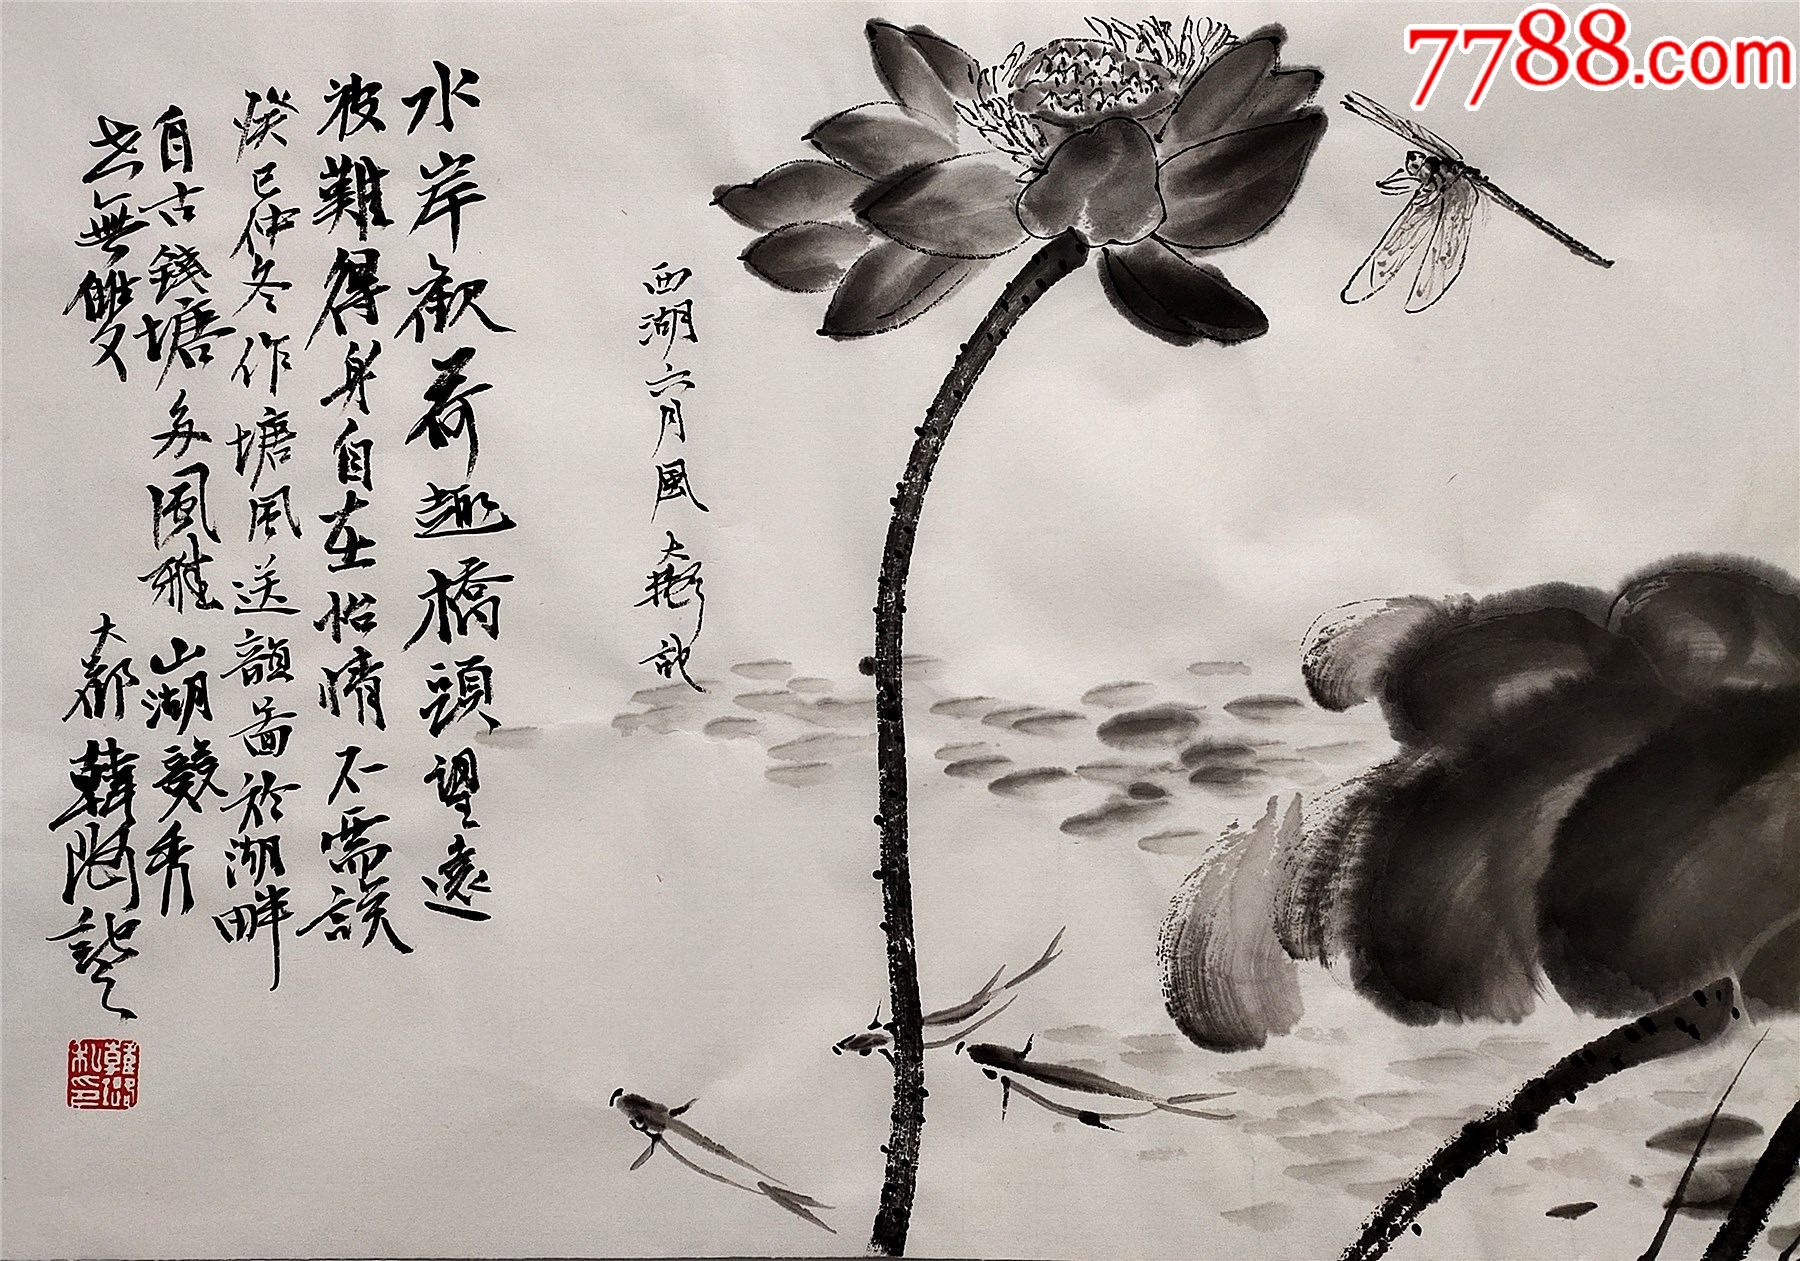 7788.com
西湖六月風 大 記
水岸歡荷趣橋頭望遠
波難得身自在怡情不需誤
癸巳仲冬作塘風送韻啚於湖畔
自古錢塘多風雅山湖競秀
世無雙
大 韓